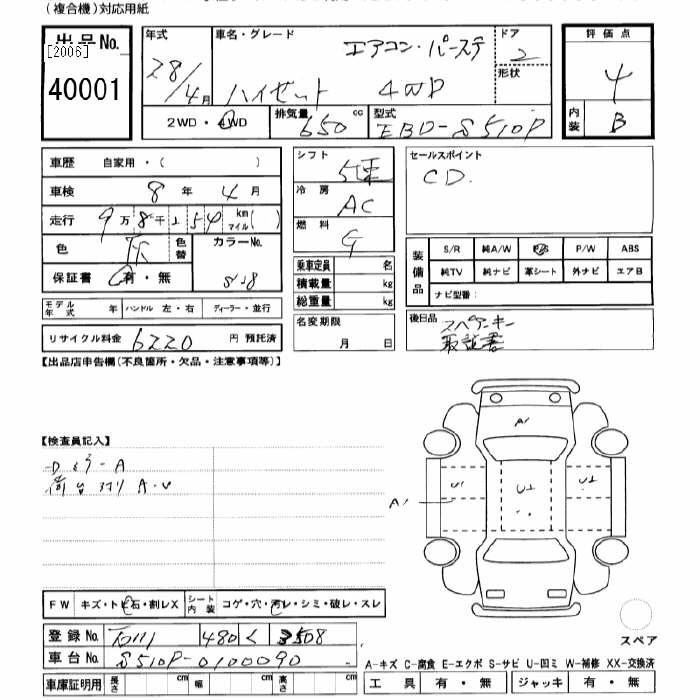 (複合機)対応用紙
出品No.
[2006]
40001
年式
28/4月
車名・グレード
エアコン・パーステ
ハイゼット 4WD
ドア
2
形状
2WD・4WD
排気量
650 cc
型式
EBD-S510P
評価点
4
内装
B
車歴 自家用・( )
車検 8年 4月
走行 9万8千154 km マイル( )
色
色替
カラーNo.
保証書 有・無
モデル年式 年
ハンドル 左・右
ディーラー・並行
リサイクル料金 6220 円 預託済
シフト
冷房
AC
燃料
G
乗車定員 名
積載量 kg
総重量 kg
名変期限
月 日
セールスポイント
CD.
装備品
S/R 純A/W P/S P/W ABS
純TV 純ナビ 革シート 外ナビ エアB
ナビ型番:
後日品
スペアーキー
取説書
【出品店申告欄(不良箇所・欠品・注意事項等)】
【検査員記入】
荷台
A・U
A1
U1
U1
A1
FW キズ・トビ石・割レX
シート内装 コゲ・穴・汚レ・シミ・破レ・スレ
登録No.
480 く 3508
車台No. S510P-0100090
車庫証明用 長さ cm 幅 cm 高さ cm
スペア
A-キズ C-腐食 E-エクボ S-サビ U-凹ミ W-補修 XX-交換済
工具 有・無 ジャッキ 有・無